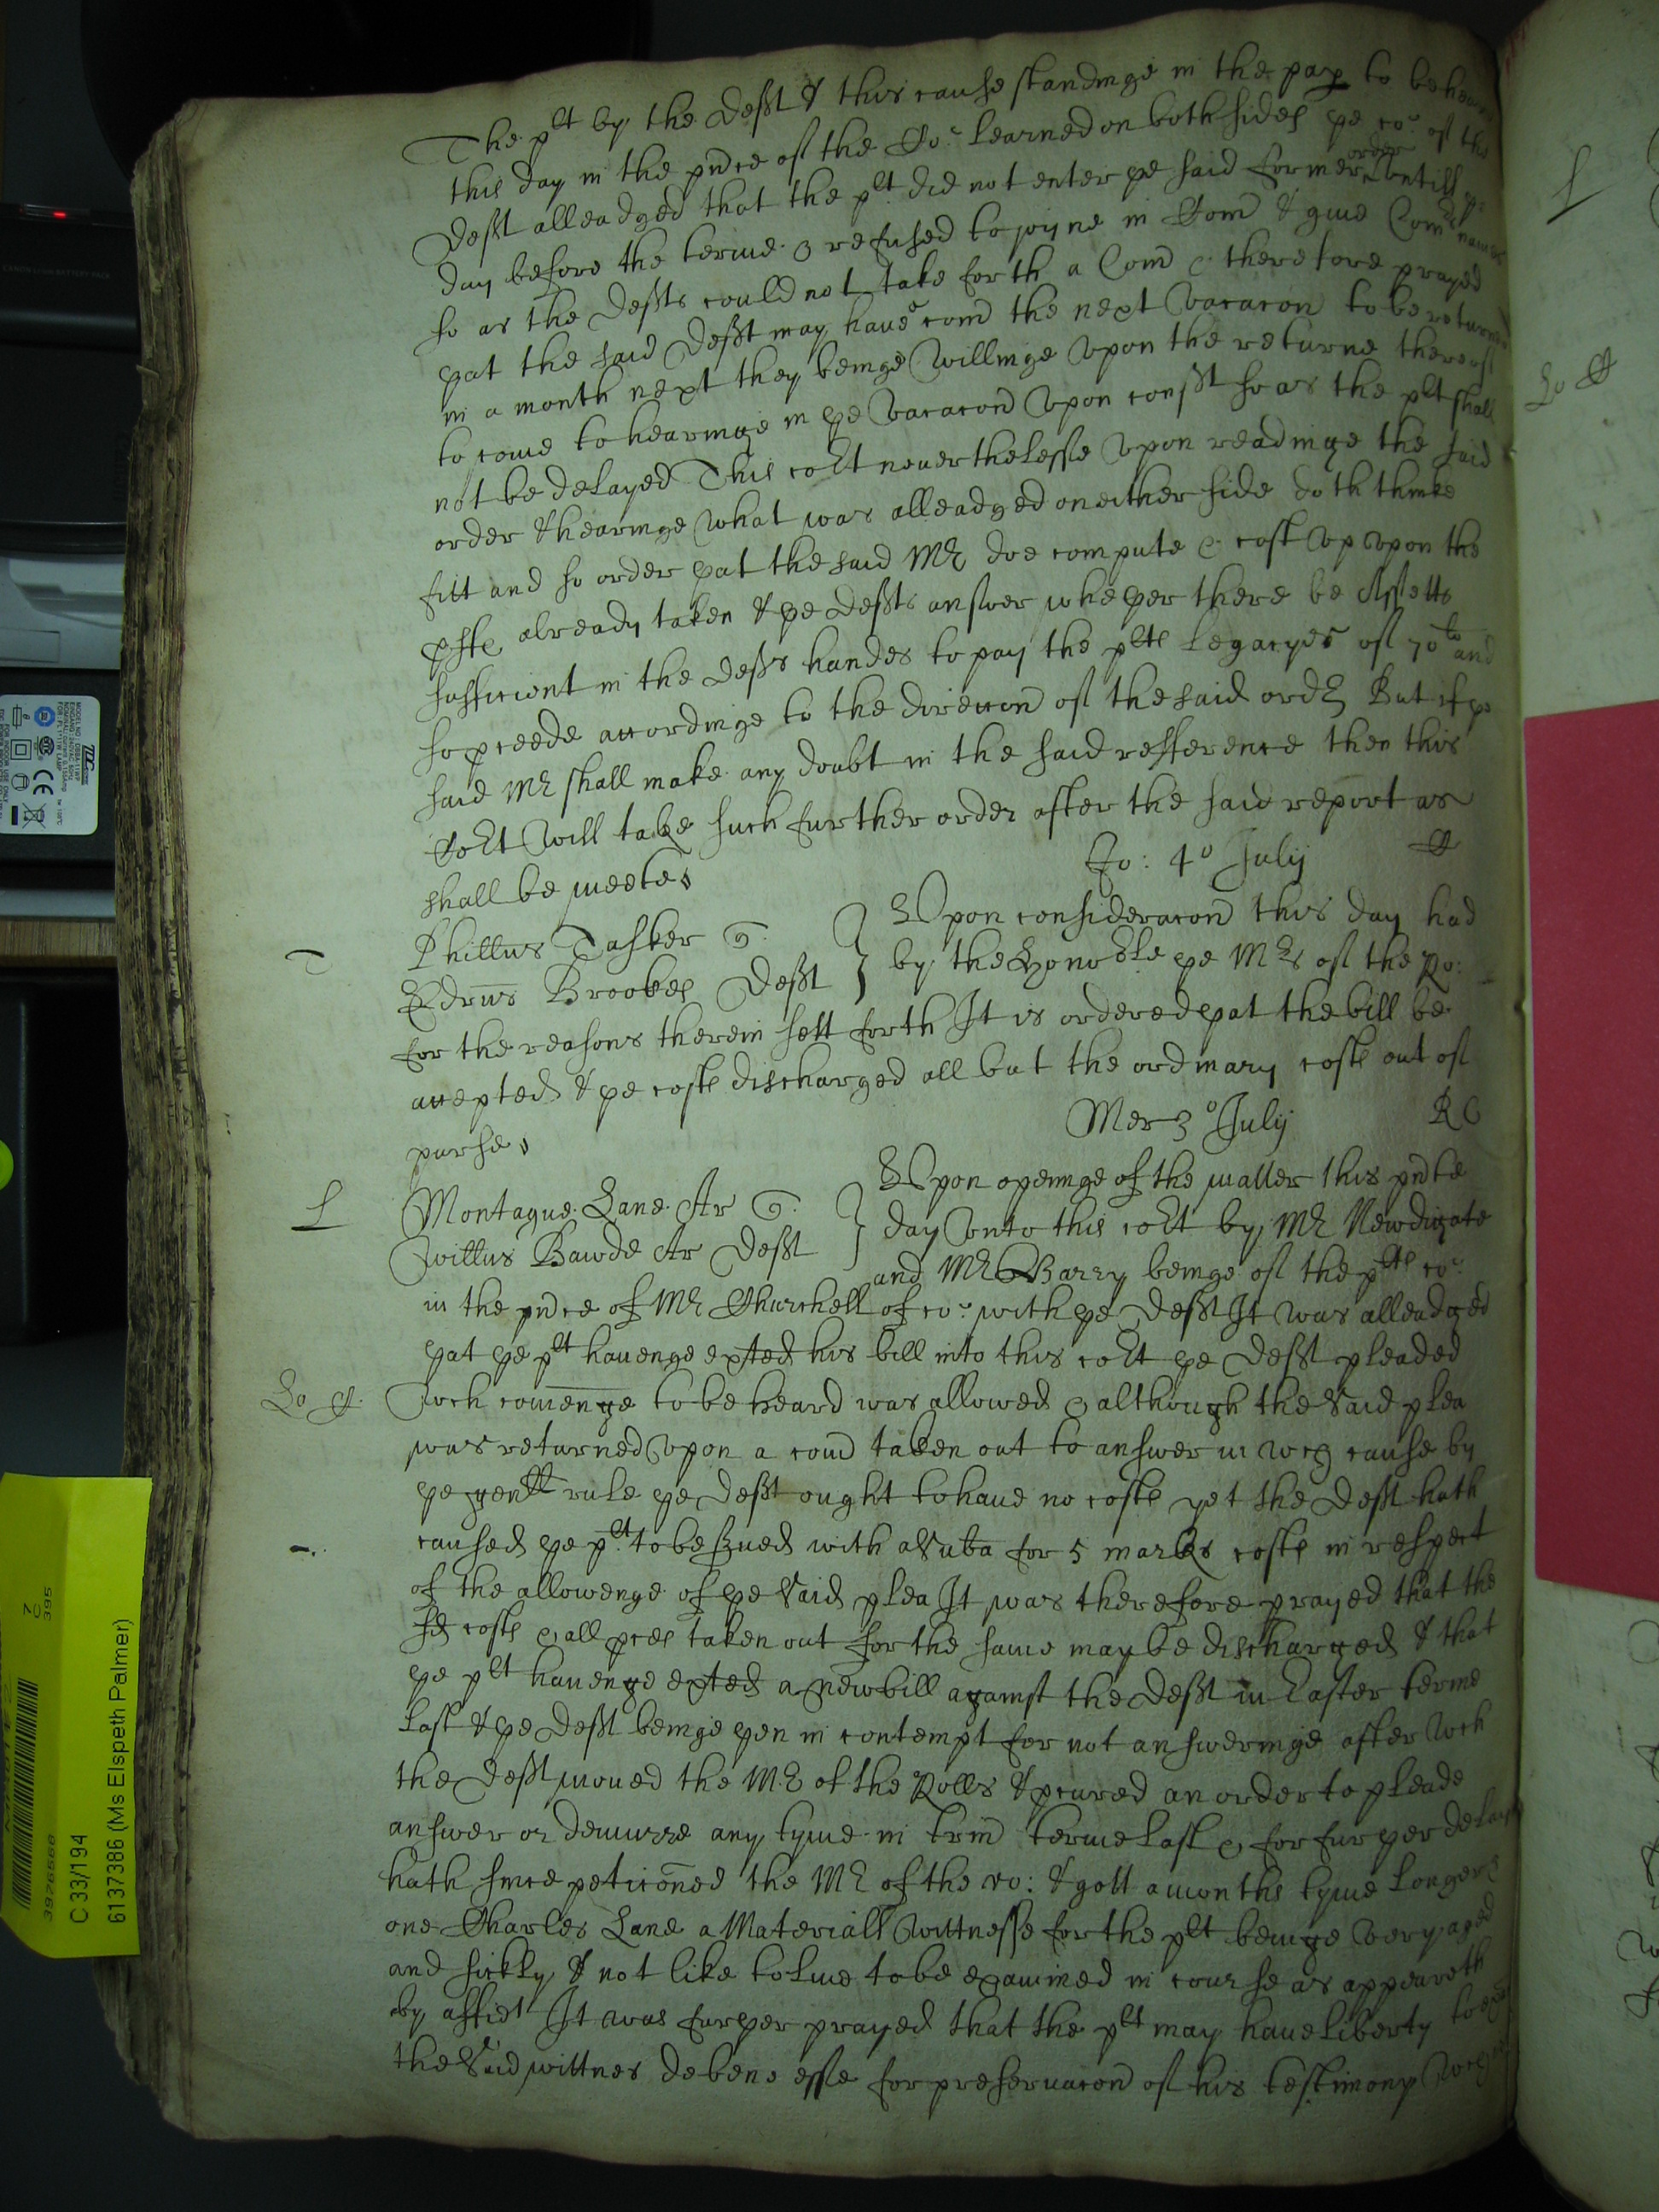 The plt by the Deft & this cause standinge in the pap to be heard
this day in the pnce of the Co: learned on both sides ye co: of the
Deft alleadged that the plt did not enter ye said former order untill ye
day before the terme & refused to joyne in Com & give Comrs names
so as the Defts could not take forth a Com & therefore prayed
yat the said Deft may have a com the next vacacon to be returned
in a month next they beinge willinge upon the returne thereof
to come to hearinge in ye vacacon upon const so as the plt shall
not be delayed This cort neverthelesse upon readinge the said
order & hearinge what was alleadged on either side doth thinke
fitt and so order yat the said Mr doe compute & cast up upon the
pfs already taken & ye Defts answer wheyer there be Assetts
sufficient in the Defts handes to pay the plts legacyes of 70li and
so pceede accordinge to the direccon of the said order But if ye
said Mr shall make any doubt in the said refference then this
Cort will take such further order after the said report as
shall be meete
Jo: 4o July
Phillus Tasker q:
Edrus Brookes Deft
Upon consideracon this day had
by the Honoble ye Mr of the Ro:
for the reasons therein sett forth It is ordered yat the bill be
accepted & ye costs discharged all but the ordinary costs out of
purse
Mer 3o July RC
Montague Lane Ar q:
Willus Bawde Ar Deft
Upon openinge of the matter this pnte
day unto this cort by Mr Newdigate
and Mr Barry beinge of the plts co:
in the pnce of Mr Churchell of co: with ye Deft It was alleadged
yat ye plt havenge exted his bill into this cort ye Deft pleaded
wch comenge to be heard was allowed & although the said plea
was returned upon a com taken out to answer in wch cause by
ye genll rule ye Deft ought to have no costs yet the Deft hath
caused ye plt to be sued with a Suba for 5 marks costs in respect
of the allowenge of ye said plea It was therefore prayed that the
sd costs & all pces taken out for the same may be discharged & that
ye plt havenge exted a new bill against the Deft in Easter terme
last & ye Deft beinge yen in contempt for not answeringe after wch
the Deft moved the Mr of the Rolls & pcured an order to pleade
answer or demurre any tyme in Trin terme last & for furyer delay
hath since peticoned the Mr of the ro: & gott a months tyme longer
one Charles Lane a Materiall Wittnesse for the plt beinge very aged
and sickly & not like to live to be examined in course as appeareth
by affidt It was furyer prayed that the plt may have liberty to
the said wittnes de bene esse for preservacon of his testimony
L
Lo
MODEL NO
C 33/194
6137386 (Ms Elspeth Palmer)
7
C
395